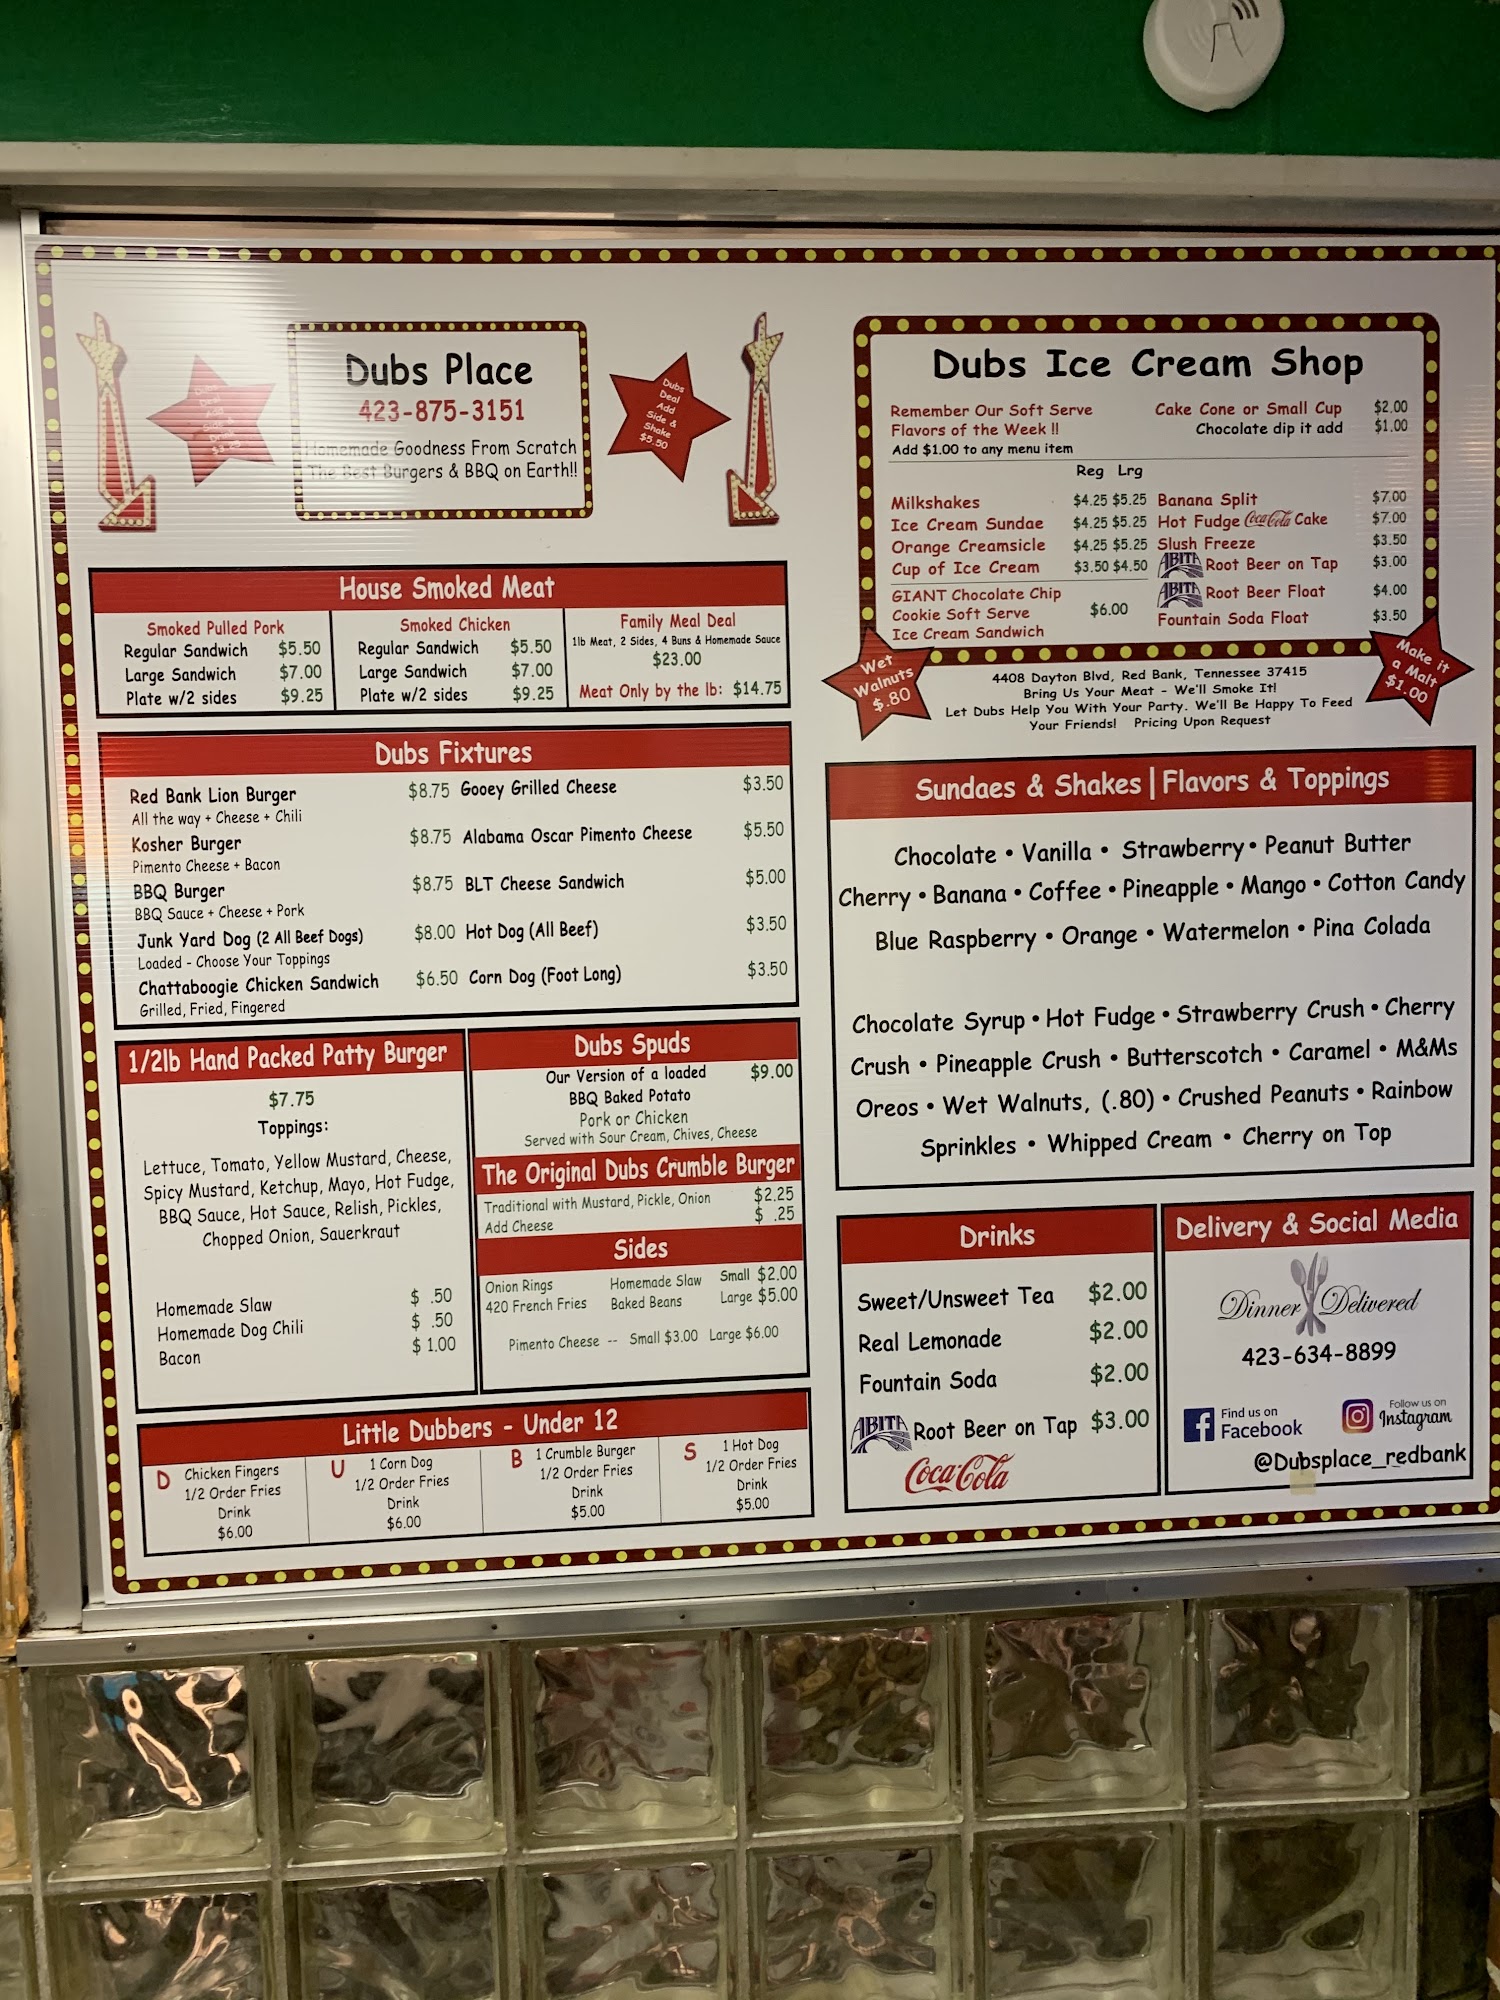 Dubs Place
423-875-3151
Homemade Goodness From Scratch
The Best Burgers & BBQ on Earth!!
Dubs
Deal
Add
Side &
Shake
$5.50
House Smoked Meat
Smoked Pulled Pork
Regular Sandwich $5.50
Large Sandwich $7.00
Plate w/2 sides $9.25
Smoked Chicken
Regular Sandwich $5.50
Large Sandwich $7.00
Plate w/2 sides $9.25
Family Meal Deal
1lb Meat, 2 Sides, 4 Buns & Homemade Sauce
$23.00
Meat Only by the lb: $14.75
Dubs Fixtures
Red Bank Lion Burger $8.75
All the way + Cheese + Chili
Kosher Burger $8.75
Pimento Cheese + Bacon
BBQ Burger $8.75
BBQ Sauce + Cheese + Pork
Junk Yard Dog (2 All Beef Dogs) $8.00
Loaded - Choose Your Toppings
Chattaboogie Chicken Sandwich $6.50
Grilled, Fried, Fingered
Gooey Grilled Cheese $3.50
Alabama Oscar Pimento Cheese $5.50
BLT Cheese Sandwich $5.00
Hot Dog (All Beef) $3.50
Corn Dog (Foot Long) $3.50
1/2lb Hand Packed Patty Burger
$7.75
Toppings:
Lettuce, Tomato, Yellow Mustard, Cheese,
Spicy Mustard, Ketchup, Mayo, Hot Fudge,
BBQ Sauce, Hot Sauce, Relish, Pickles,
Chopped Onion, Sauerkraut
Homemade Slaw $ .50
Homemade Dog Chili $ .50
Bacon $ 1.00
Dubs Spuds
Our Version of a loaded $9.00
BBQ Baked Potato
Pork or Chicken
Served with Sour Cream, Chives, Cheese
The Original Dubs Crumble Burger
Traditional with Mustard, Pickle, Onion $2.25
Add Cheese $ .25
Sides
Onion Rings Homemade Slaw Small $2.00
420 French Fries Baked Beans Large $5.00
Pimento Cheese -- Small $3.00 Large $6.00
Little Dubbers - Under 12
D Chicken Fingers
1/2 Order Fries
Drink
$6.00
U 1 Corn Dog
1/2 Order Fries
Drink
$6.00
B 1 Crumble Burger
1/2 Order Fries
Drink
$5.00
S 1 Hot Dog
1/2 Order Fries
Drink
$5.00
Dubs Ice Cream Shop
Remember Our Soft Serve
Flavors of the Week !!
Add $1.00 to any menu item
Cake Cone or Small Cup $2.00
Chocolate dip it add $1.00
Reg Lrg
Milkshakes $4.25 $5.25
Ice Cream Sundae $4.25 $5.25
Orange Creamsicle $4.25 $5.25
Cup of Ice Cream $3.50 $4.50
GIANT Chocolate Chip
Cookie Soft Serve $6.00
Ice Cream Sandwich
Banana Split $7.00
Hot Fudge Coca-Cola Cake $7.00
Slush Freeze $3.50
ABITA Root Beer on Tap $3.00
ABITA Root Beer Float $4.00
Fountain Soda Float $3.50
Wet
Walnuts
$.80
Make it
a Malt
$1.00
4408 Dayton Blvd, Red Bank, Tennessee 37415
Bring Us Your Meat - We'll Smoke It!
Let Dubs Help You With Your Party. We'll Be Happy To Feed
Your Friends! Pricing Upon Request
Sundaes & Shakes | Flavors & Toppings
Chocolate • Vanilla • Strawberry • Peanut Butter
Cherry • Banana • Coffee • Pineapple • Mango • Cotton Candy
Blue Raspberry • Orange • Watermelon • Pina Colada
Chocolate Syrup • Hot Fudge • Strawberry Crush • Cherry
Crush • Pineapple Crush • Butterscotch • Caramel • M&Ms
Oreos • Wet Walnuts, (.80) • Crushed Peanuts • Rainbow
Sprinkles • Whipped Cream • Cherry on Top
Drinks
Sweet/Unsweet Tea $2.00
Real Lemonade $2.00
Fountain Soda $2.00
ABITA Root Beer on Tap $3.00
Coca-Cola
Delivery & Social Media
Dinner Delivered
423-634-8899
Find us on
Facebook
Follow us on
Instagram
@Dubsplace_redbank